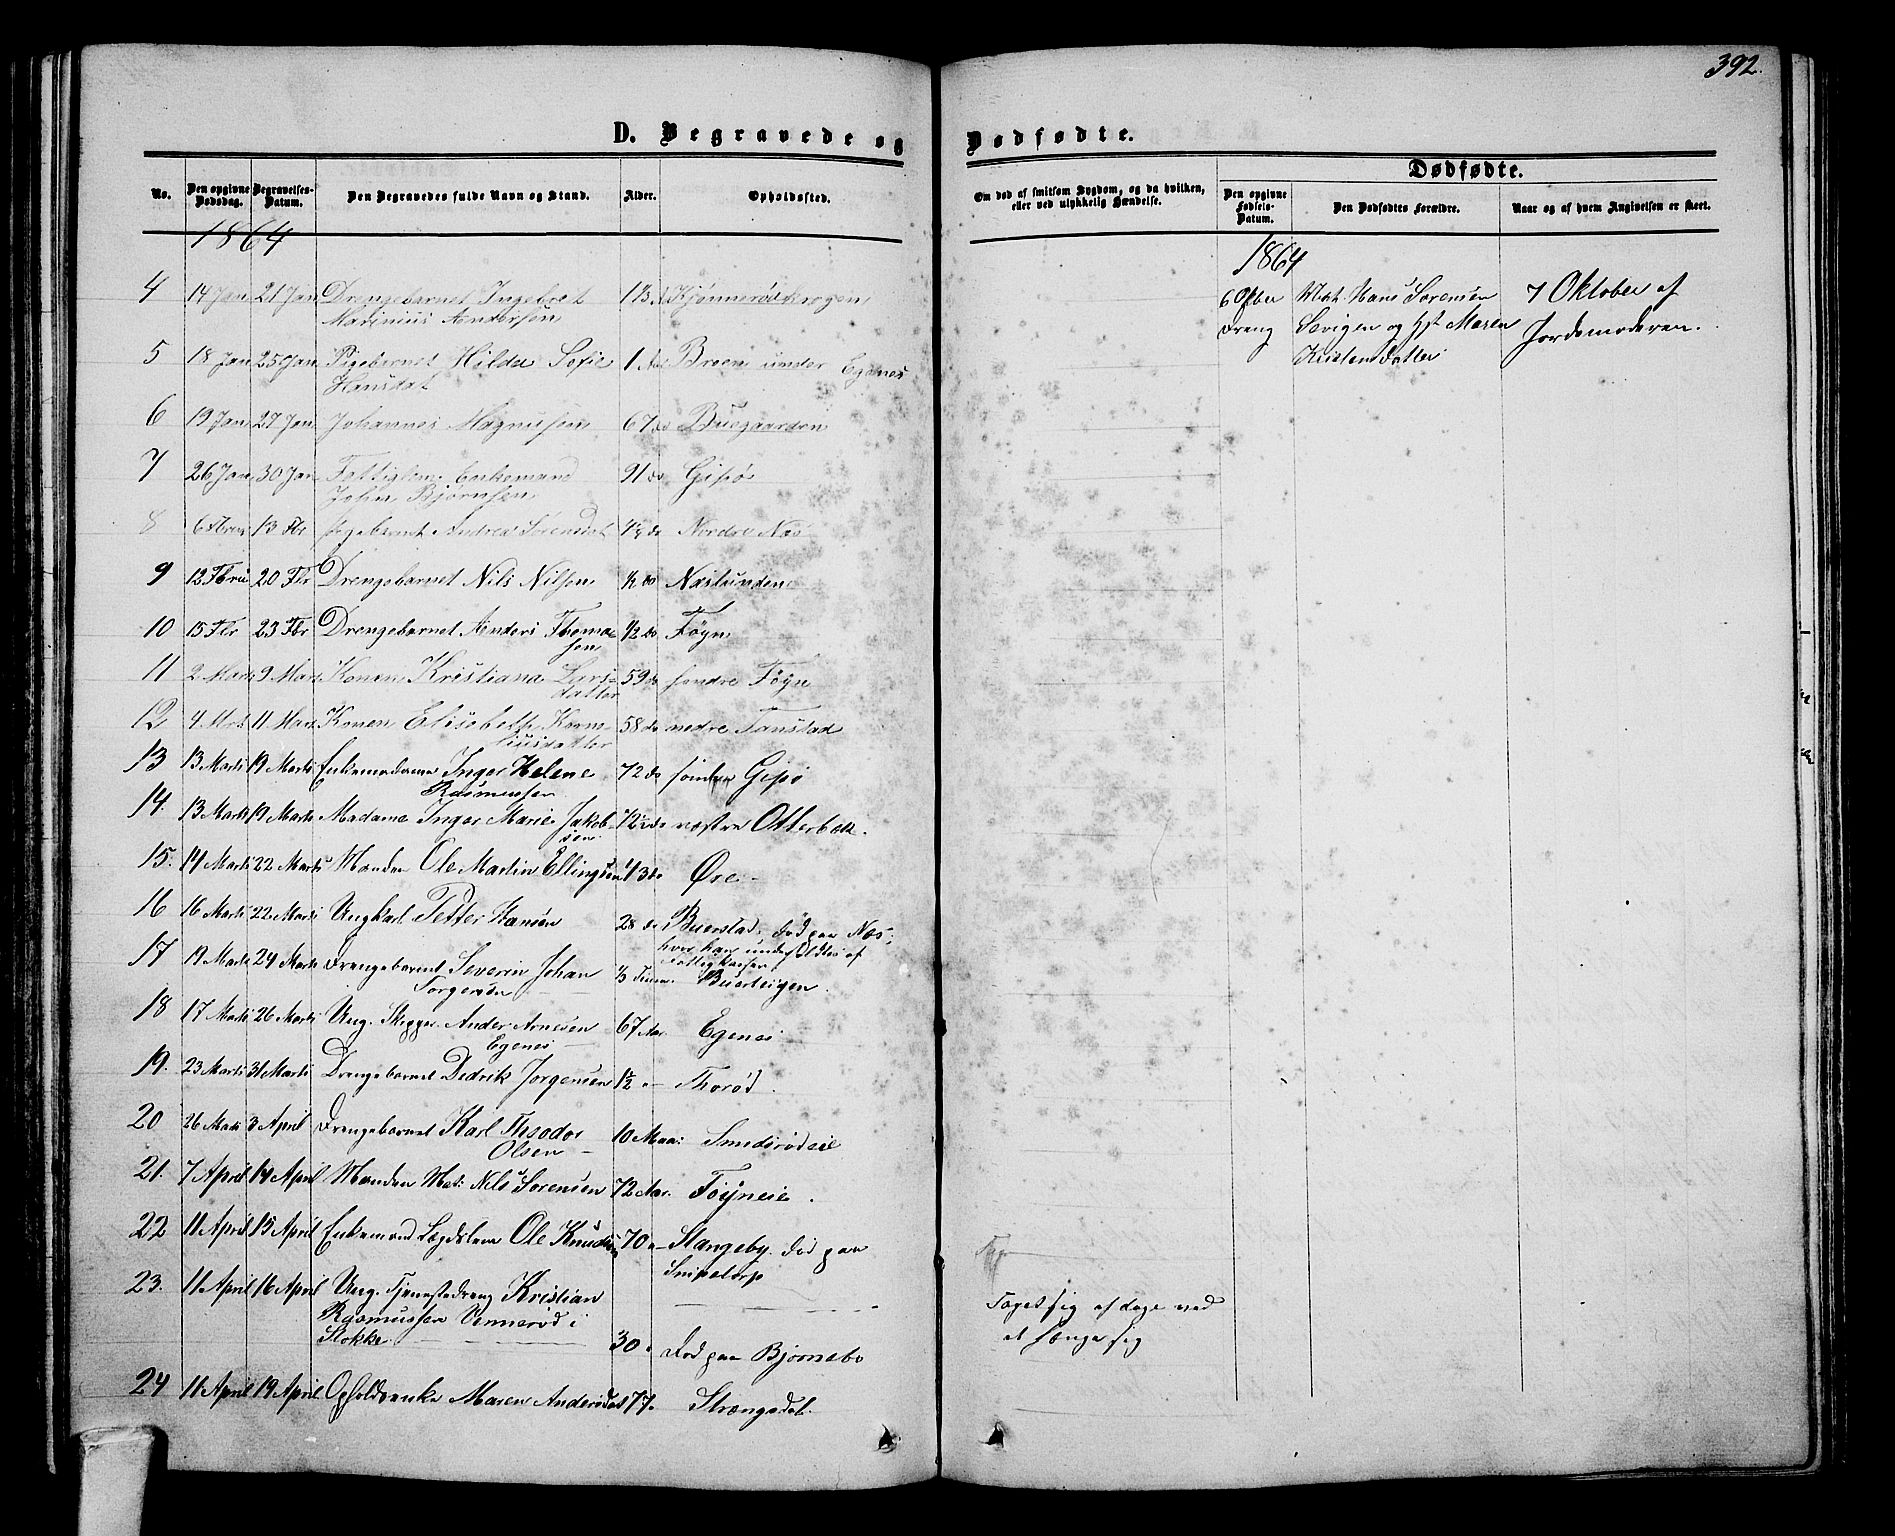 392.
D. Begravede og Dødfødte.
No. Den opgivne Dødsdag. Begravelses-Datum. Den Begravedes fulde Navn og Stand. Alder. Opholdssted.
Om død af smitsom Sygdom, og da hvilken, eller ved ulykkelig Hændelse.
Dødfødte.
Den opgivne Fødsels-Datum. Den Dødfødtes Forældre. Naar og af hvem Angivelsen er skeet.
1864
4 14 Jan 21 Jan Drengebarnet Ingebret
Marinius Andersen
5 18 Jan 25 Jan Pigebarnet Hilda Sofie 1 Broen under Egenes
Hansdat
6 19 Jan 27 Jan Johannes Magnusen 67 do Buegaarden
7 26 Jan 30 Jan Enkemand 91 do Gipø
John Bjørnsen
8 13 Fbr Pigebarnet Andrea Sørensdat do Nordre Næs
9 12 Fbru 20 Fbr Drengebarnet Nils Nilsen 1/2 do Næslunden
10 15 Fbr 23 Fbr Drengebarnet Anders Thoma 1/2 do Føyn
sen
11 2 Marts 9 Mars Konen Kristiana Lars- 59 do søndre Føyn
datter
12 4 Mrts 11 Mars Konen Elisabeth Korne- 58 do nedre Tanstad
liusdatter
13 13 Marts 19 Marts Enkemadame Inger Helene 72 do søndre Gipø
Rasmussen
14. 13 Marts 19 Marts Madame Inger Marie Jakob- 72½ do vestre Otterbek.
sen
15. 14 Marts 22 Marts Manden Ole Martin Ellingsen 43 do Øre
16 16 Marts 22 Marts Ungkarl Petter Hansen 28 do Buerstad, død paa Næs;
hvor han underholdtes af
Fattigkassen
17 19 Marts 24 Marts Drengebarnet Severin Johan 1/3 Time Buerteigen.
Torgersen
18 17 Marts 26 Marts Ung. Skipper Anders Arnesen 67 Aar Egenes
Egenes
19. 23 Marts 31 Marts Drengebarnet Didrik Jørgensen 1½ " Thorød.
20 26 Marts 3 April Drengebarnet Karl Theodor 10 Maan: Smidsrødeie
Olsen
21. 7 April 14 April Manden Mat. Nils Sørensen 72 Aar. Føyneie.
22 11 April 15 April Enkemand Lægdslem Ole Knudsen 70 " Stangeby. død paa
Snipetorp
23. 11 April 16 April Ung. Tjenestedreng Kristian
Rasmussen Vennerød i
Stokke 30 " død paa Bjørnebo
24 11 April 19 April Opholdsenke Maren Andersdat 77 " Strængsdal.
1864
6 Oktbr Mat. Hans Sørensen 7 Oktober af
Dreng og Hst. Maren Jordemoderen.
Kristensdatter
Taget sig af dage ved
at hænge sig